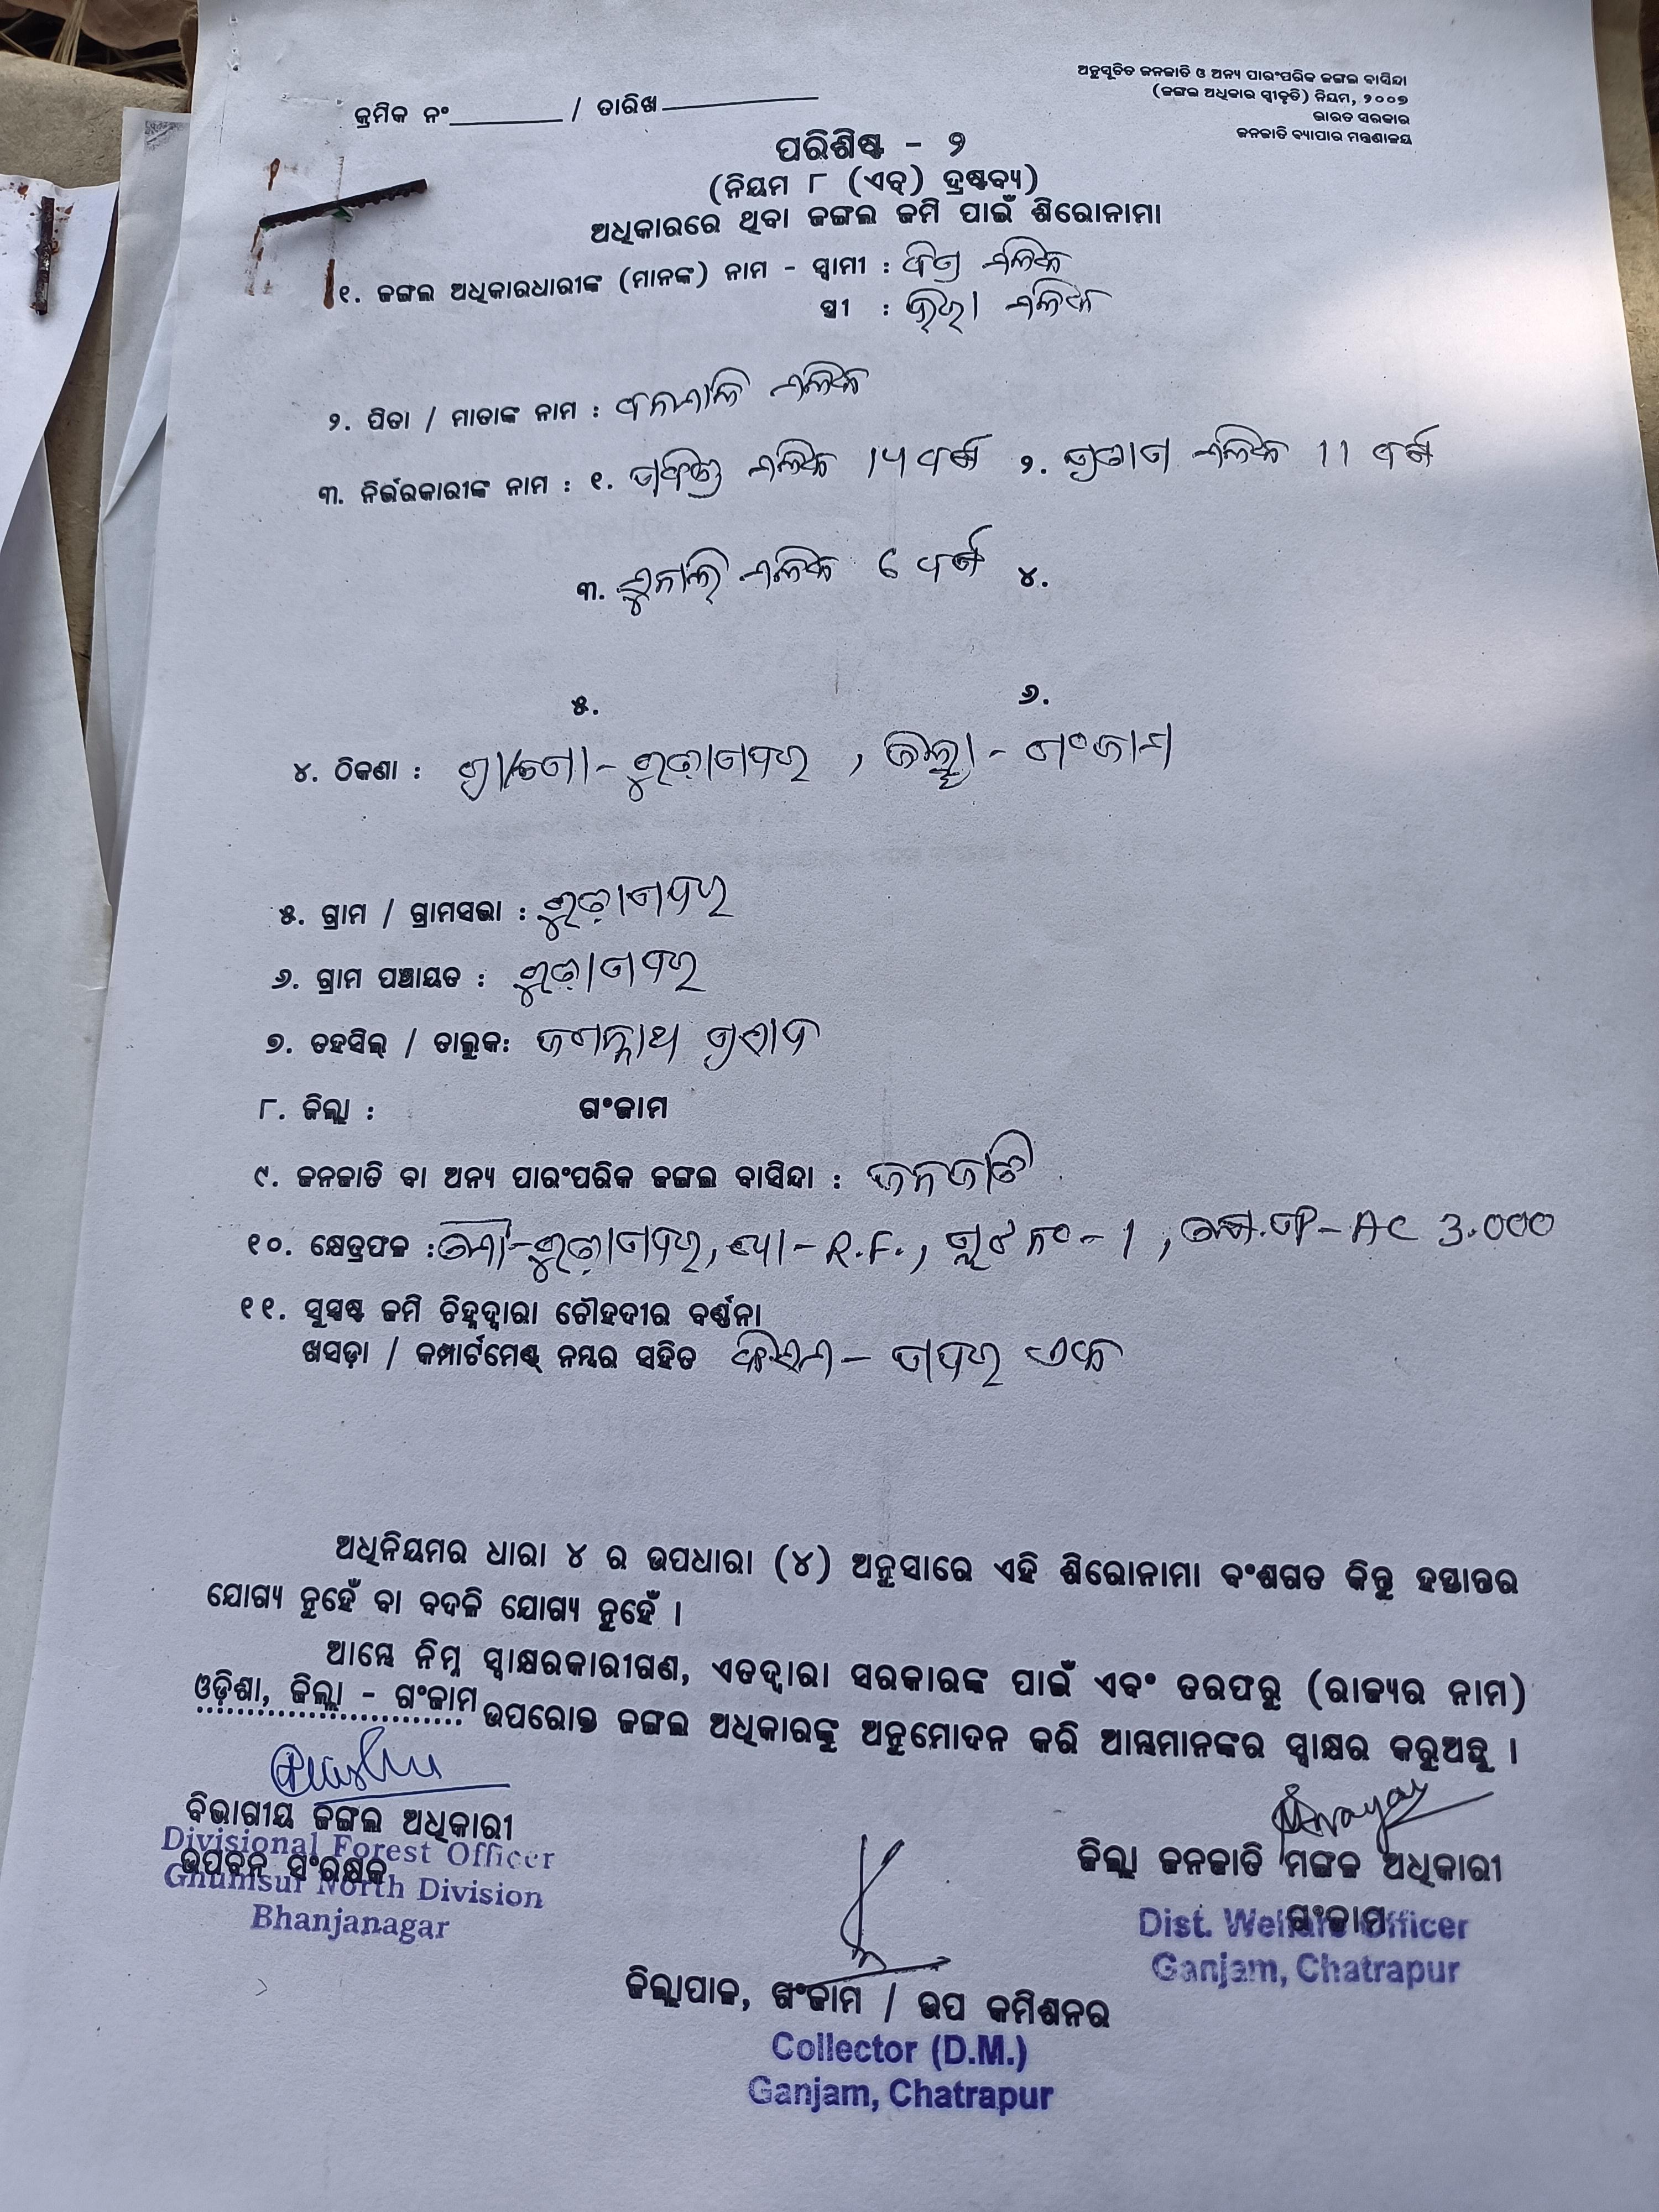 ଅନୁସୂଚିତ ଜନଜାତି ଓ ଅନ୍ୟ ପାରଂପରିକ ଜଙ୍ଗଲ ବାସିନ୍ଦା
(ଜଙ୍ଗଲ ଅଧିକାର ସ୍ୱୀକୃତି) ନିୟମ, ୨୦୦୭
ଭାରତ ସରକାର
ଜନଜାତି ବ୍ୟାପାର ମନ୍ତ୍ରଣାଳୟ
କ୍ରମିକ ନଂ________ / ତାରିଖ___________
ପରିଶିଷ୍ଟ - ୨
(ନିୟମ ୮ (ଏଚ୍) ଦ୍ରଷ୍ଟବ୍ୟ)
ଅଧିକାରରେ ଥିବା ଜଙ୍ଗଲ ଜମି ପାଇଁ ଶିରୋନାମା
୧. ଜଙ୍ଗଲ ଅଧିକାରଧାରୀଙ୍କ (ମାନଙ୍କ) ନାମ - ସ୍ୱାମୀ :
ସ୍ତ୍ରୀ :
୨. ପିତା / ମାତାଙ୍କ ନାମ :
୩. ନିର୍ଭରକାରୀଙ୍କ ନାମ : ୧. ମଲିକ 14 ବର୍ଷ ୨. ମଲିକ 11 ବର୍ଷ
୩. ମଲିକ 6 ବର୍ଷ ୪.
୫. ୬.
୪. ଠିକଣା : ଗ୍ରା/ପୋ - ମୁଢ଼ାଗଦର, ଜିଲ୍ଲା - ଗଂଜାମ
୫. ଗ୍ରାମ / ଗ୍ରାମସଭା : ମୁଢ଼ାଗଦର
୬. ଗ୍ରାମ ପଞ୍ଚାୟତ : ମୁଢ଼ାଗଦର
୭. ତହସିଲ୍ / ତାଲୁକ: ଜଗନ୍ନାଥ ପ୍ରସାଦ
୮. ଜିଲ୍ଲା : ଗଂଜାମ
୯. ଜନଜାତି ବା ଅନ୍ୟ ପାରଂପରିକ ଜଙ୍ଗଲ ବାସିନ୍ଦା : ଜନଜାତି
୧୦. କ୍ଷେତ୍ରଫଳ : ମୌ - ମୁଢ଼ାଗଦର, R.F., ପ୍ଲଟ ନଂ - 1, AC 3.000
୧୧. ସୁସ୍ପଷ୍ଟ ଜମି ଚିହ୍ନଦ୍ୱାରା ଚୌହଦୀର ବର୍ଣ୍ଣନା
ଖସଡ଼ା / କମ୍ପାର୍ଟମେଣ୍ଟ ନମ୍ବର ସହିତ କିସମ - ଗଦର ଏକ
ଅଧିନିୟମର ଧାରା ୪ ର ଉପଧାରା (୪) ଅନୁସାରେ ଏହି ଶିରୋନାମା ବଂଶଗତ କିନ୍ତୁ ହସ୍ତାନ୍ତର
ଯୋଗ୍ୟ ନୁହେଁ ବା ବଦଳି ଯୋଗ୍ୟ ନୁହେଁ ।
ଆମ୍ଭେ ନିମ୍ନ ସ୍ୱାକ୍ଷରକାରୀଗଣ, ଏତଦ୍ୱାରା ସରକାରଙ୍କ ପାଇଁ ଏବଂ ତରଫରୁ (ରାଜ୍ୟର ନାମ)
ଓଡ଼ିଶା, ଜିଲ୍ଲା - ଗଂଜାମ ଉପରୋକ୍ତ ଜଙ୍ଗଲ ଅଧିକାରଙ୍କୁ ଅନୁମୋଦନ କରି ଆମ୍ଭମାନଙ୍କର ସ୍ୱାକ୍ଷର କରୁଅଛୁ ।
ବିଭାଗୀୟ ଜଙ୍ଗଲ ଅଧିକାରୀ
Divisional Forest Officer
ଉପବନ ସଂରକ୍ଷକ
Ghumsur North Division
Bhanjanagar
ଜିଲ୍ଲା ଜନଜାତି ମଙ୍ଗଳ ଅଧିକାରୀ
ଗଂଜାମ
Dist. Welfare Officer
Ganjam, Chatrapur
ଜିଲ୍ଲାପାଳ, ଗଂଜାମ / ଉପ କମିଶନର
Collector (D.M.)
Ganjam, Chatrapur